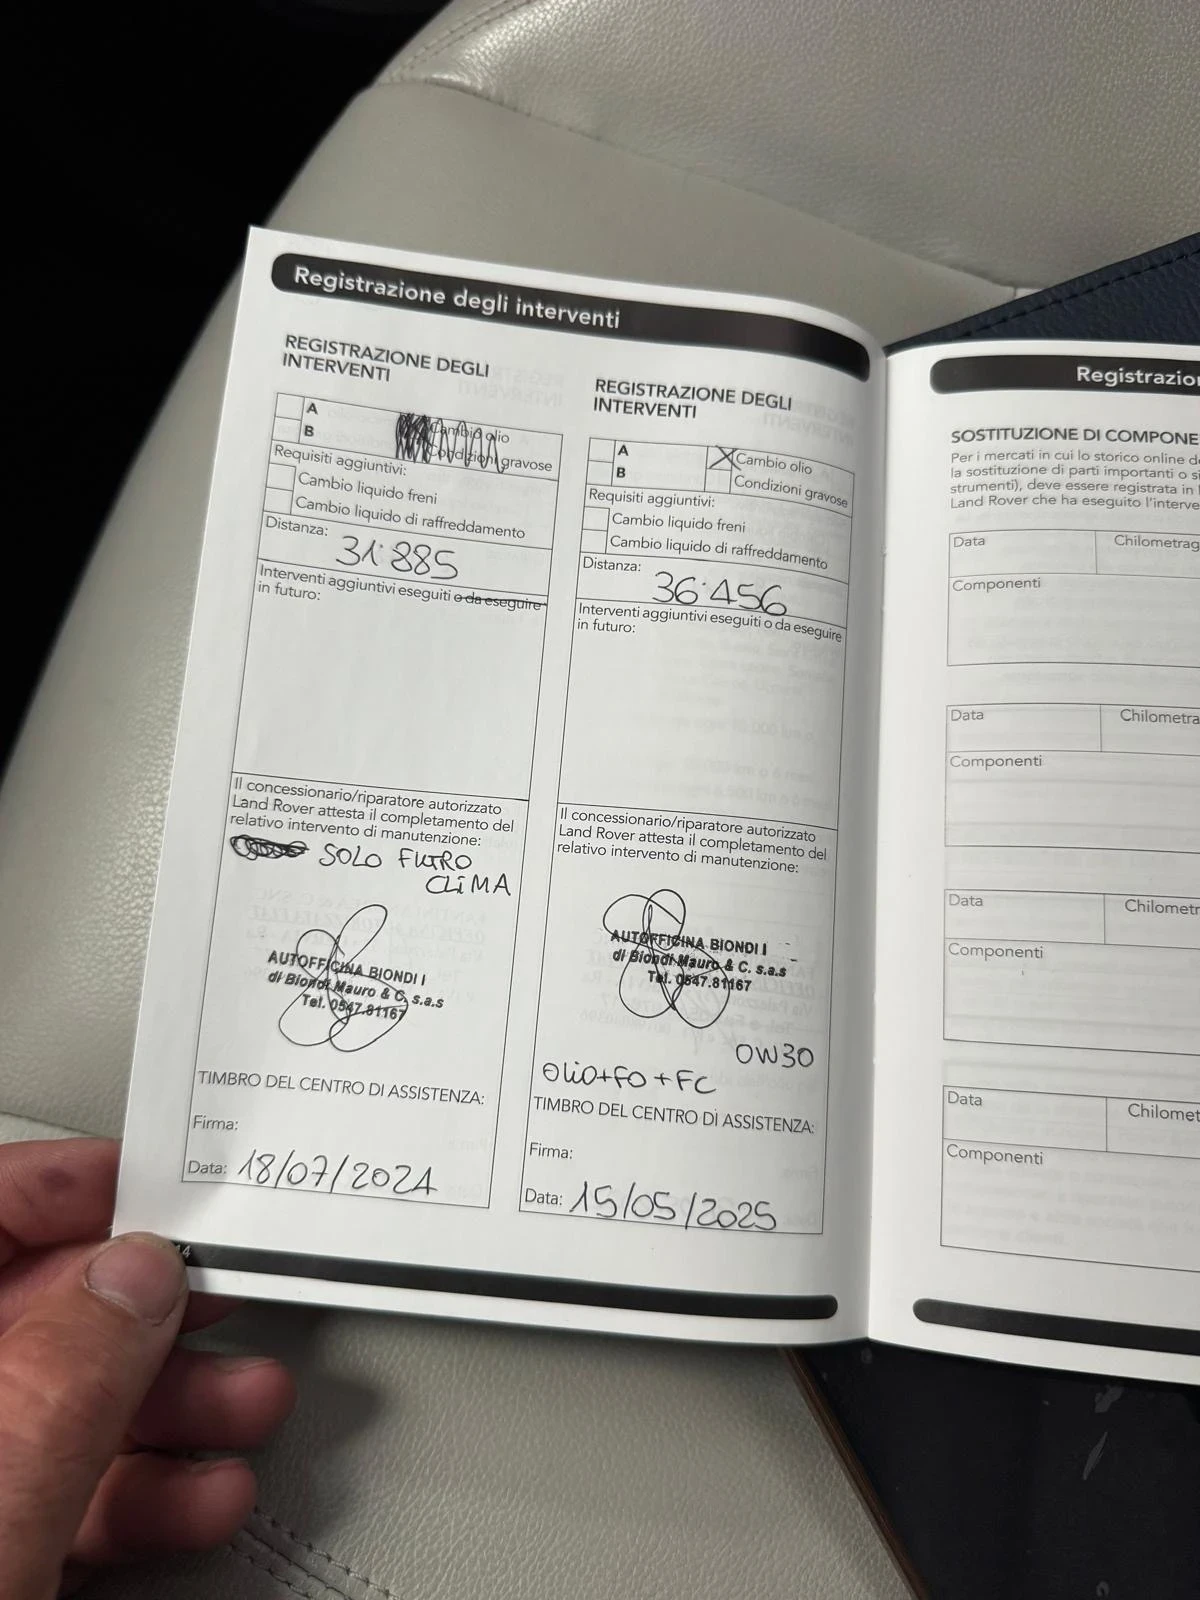 Registrazione degli interventi
REGISTRAZIONE DEGLI
INTERVENTI
A
Cambio olio
B
Condizioni gravose
Requisiti aggiuntivi:
Cambio liquido freni
Cambio liquido di raffreddamento
Distanza:
31·885
Interventi aggiuntivi eseguiti o da eseguire
in futuro:
Il concessionario/riparatore autorizzato
Land Rover attesta il completamento del
relativo intervento di manutenzione:
SOLO FILTRO
CLIMA
AUTOFFICINA BIONDI I
di Biondi Mauro & C. s.a.s
Tel. 0547.81167
TIMBRO DEL CENTRO DI ASSISTENZA:
Firma:
Data: 18/07/2024
14
REGISTRAZIONE DEGLI
INTERVENTI
A
Cambio olio
B
Condizioni gravose
Requisiti aggiuntivi:
Cambio liquido freni
Cambio liquido di raffreddamento
Distanza:
36·456
Interventi aggiuntivi eseguiti o da eseguire
in futuro:
Il concessionario/riparatore autorizzato
Land Rover attesta il completamento del
relativo intervento di manutenzione:
AUTOFFICINA BIONDI I
di Biondi Mauro & C. s.a.s
Tel. 0547.81167
0W30
OLIO+FO+FC
TIMBRO DEL CENTRO DI ASSISTENZA:
Firma:
Data: 15/05/2025
Registrazio
SOSTITUZIONE DI COMPONE
Per i mercati in cui lo storico online d
la sostituzione di parti importanti o s
strumenti), deve essere registrata in
Land Rover che ha eseguito l'interve
Data Chilometrag
Componenti
Data Chilometra
Componenti
Data Chilometr
Componenti
Data Chilomet
Componenti